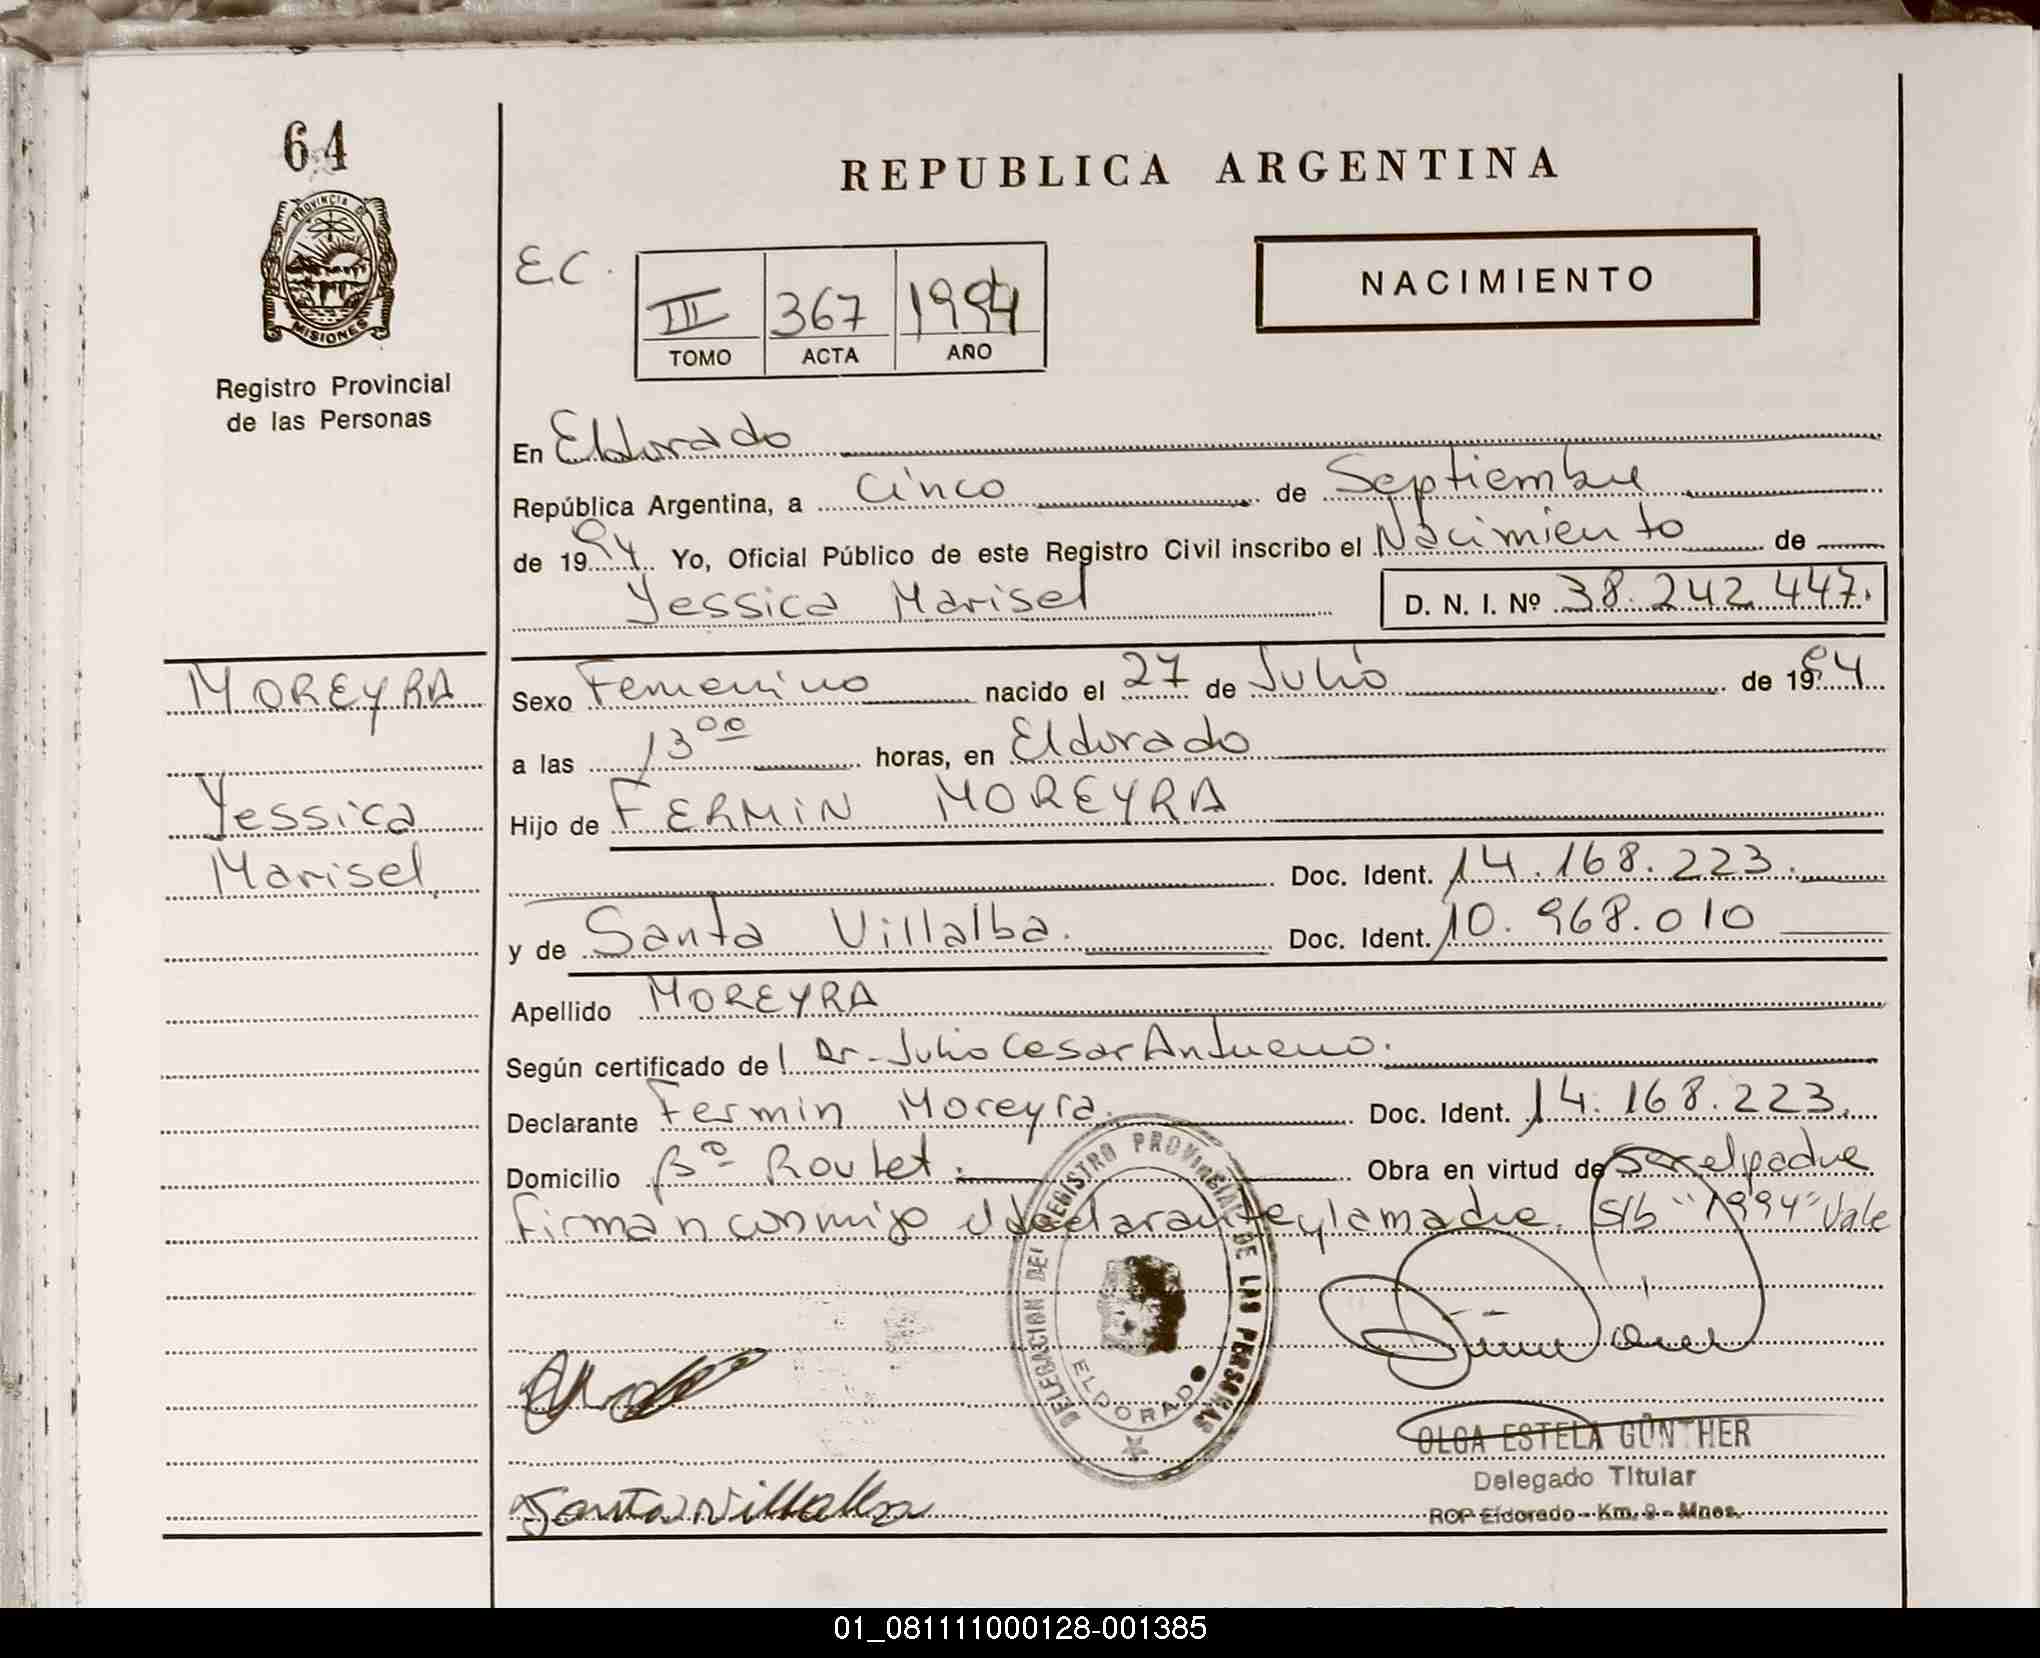 64
PROVINCIA DE
MISIONES
Registro Provincial
de las Personas
REPUBLICA ARGENTINA
E.C.
III 367 1994
TOMO ACTA AÑO
NACIMIENTO
En Eldorado
República Argentina, a Cinco de Septiembre
de 1994 Yo, Oficial Público de este Registro Civil inscribo el Nacimiento de
Yessica Marisel D. N. I. Nº 38.242.447.
MOREYRA
Yessica
Marisel
Sexo Femenino nacido el 27 de Julio de 1994
a las 13 00 horas, en Eldorado
Hijo de FERMIN MOREYRA
Doc. Ident. 14.168.223.
y de Santa Villalba. Doc. Ident. 10.968.010
Apellido MOREYRA
Según certificado de l Dr. Julio Cesar
Declarante Fermin Moreyra. Doc. Ident. 14.168.223.
Domicilio Bº Roulet. Obra en virtud de Ser el padre
Firman conmigo el declarante y la madre. S/b "1994" Vale
DELEGACION DEL REGISTRO PROVINCIAL DE LAS PERSONAS
ELDORADO
OLGA ESTELA GÜNTHER
Delegado Titular
RCP Eldorado - Km. 9 - Mnes.
Santa Villalba
01_081111000128-001385